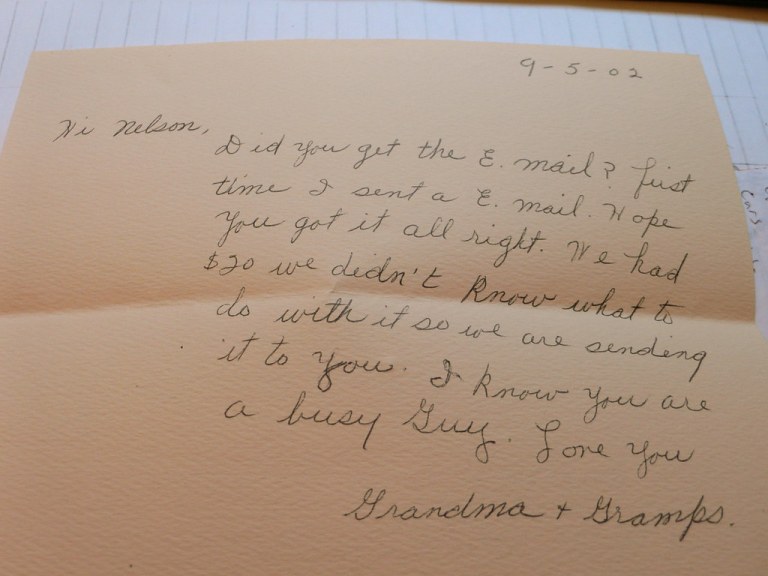 9-5-02
Hi Nelson,
Did you get the E. mail? First
time I sent a E. mail. Hope
you got it all right. We had
$20 we didn't know what to
do with it so we are sending
it to you. I know you are
a busy Guy. Love you
Grandma + Gramps.
Cars